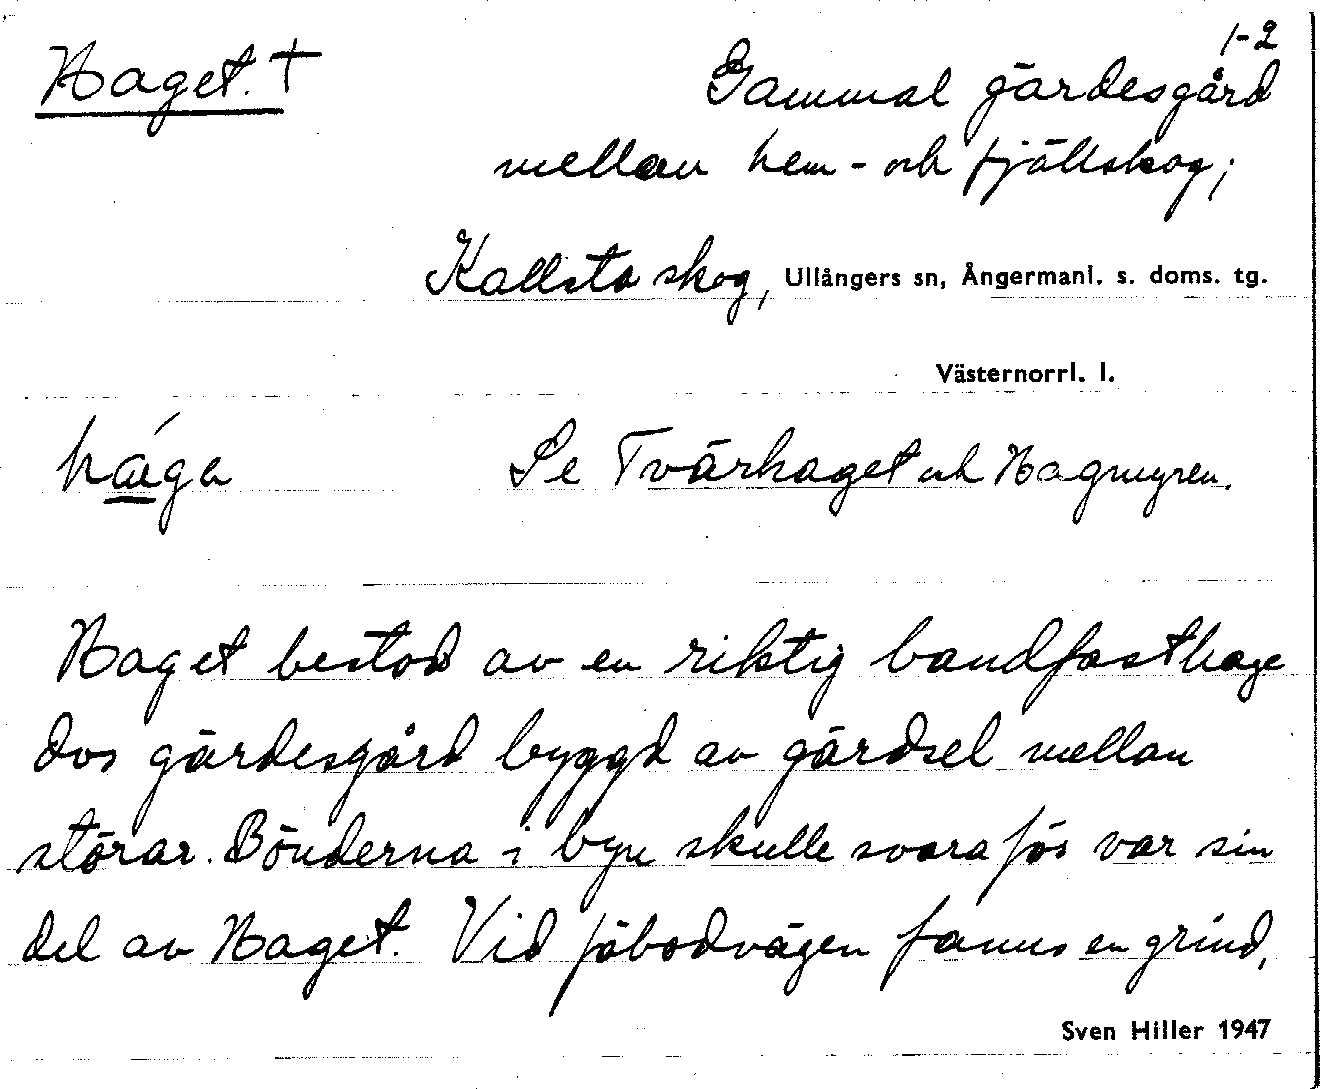 1-2
Haget. †
Gammal gärdesgård
mellan hem- och fjällskog;
Kallsta skog, Ullångers sn, Ångermanl. s. doms. tg.
Västernorrl. l.
Se Tvärhaget och Hagmyren.
Haget bestod av en riktig bandfasthage
dvs gärdesgård byggd av gärdsel mellan
störar. Bönderna i byn skulle svara för var sin
del av Haget. Vid fäbodvägen fanns en grind,
Sven Hiller 1947